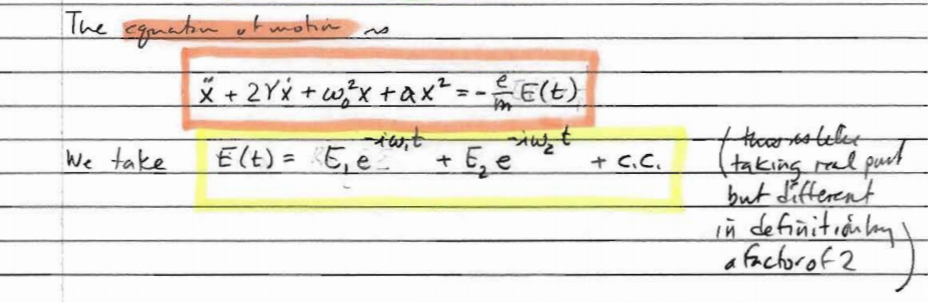 The equation of motion is
ẍ + 2γẋ + ω₀²x + ax² = -e/m E(t)
We take E(t) = E₁e^-iω₁t + E₂e^-iω₂t + c.c.
(this is like
taking real part
but different
in definition by
a factor of 2)